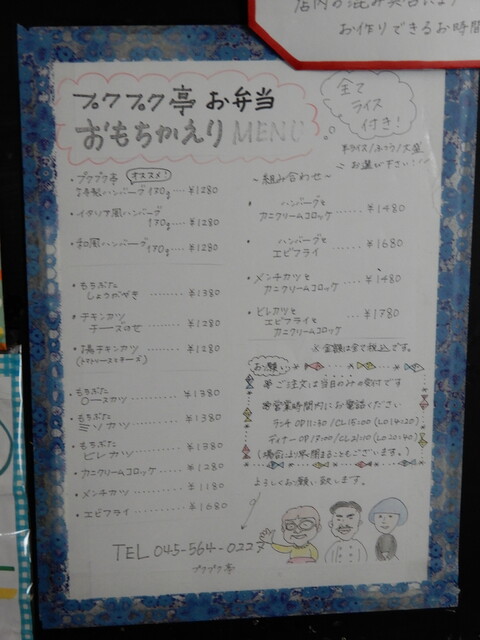 店内の混み具合により
お作りできるお時間
プクプク亭 お弁当
おもちかえり MENU
全て
ライス
付き!
半ライス/ふつう/大盛
お選び下さい!!
・プクプク亭 オススメ!
ハンバーグ 170g ‥‥ ¥1280
・イタリア風ハンバーグ
170g‥‥ ¥1280
・和風ハンバーグ
170g‥‥ ¥1280
・もちぶた
しょうがやき ‥‥‥ ¥1380
・チキンカツ
チーズのせ ‥‥‥ ¥1280
・陽チキンカツ ‥‥‥ ¥1280
(トマトソースとチーズ)
・もちぶた
ロースカツ ‥‥‥ ¥1380
・もちぶた
ミソカツ ‥‥‥ ¥1380
・もちぶた
ヒレカツ ‥‥‥ ¥1380
・カニクリームコロッケ ‥‥ ¥1280
・メンチカツ ‥‥‥ ¥1180
・エビフライ ‥‥‥ ¥1680
~組み合わせ~
・ハンバーグと
カニクリームコロッケ ‥‥ ¥1480
・ハンバーグと
エビフライ ‥‥‥ ¥1680
・メンチカツと
カニクリームコロッケ ‥‥ ¥1480
・ヒレカツと
エビフライと ‥‥‥ ¥1780
カニクリームコロッケ
※金額は全て税込です。
お願い
※ご注文は当日のみの受付です
※営業時間内にお電話ください
ランチ OP11:30/CL15:00(LO14:20)
ディナー OP17:00/CL21:10(LO20:40)
(場合により早く閉まることもございます。)
よろしくお願い致します。
TEL 045-564-0227
プクプク亭